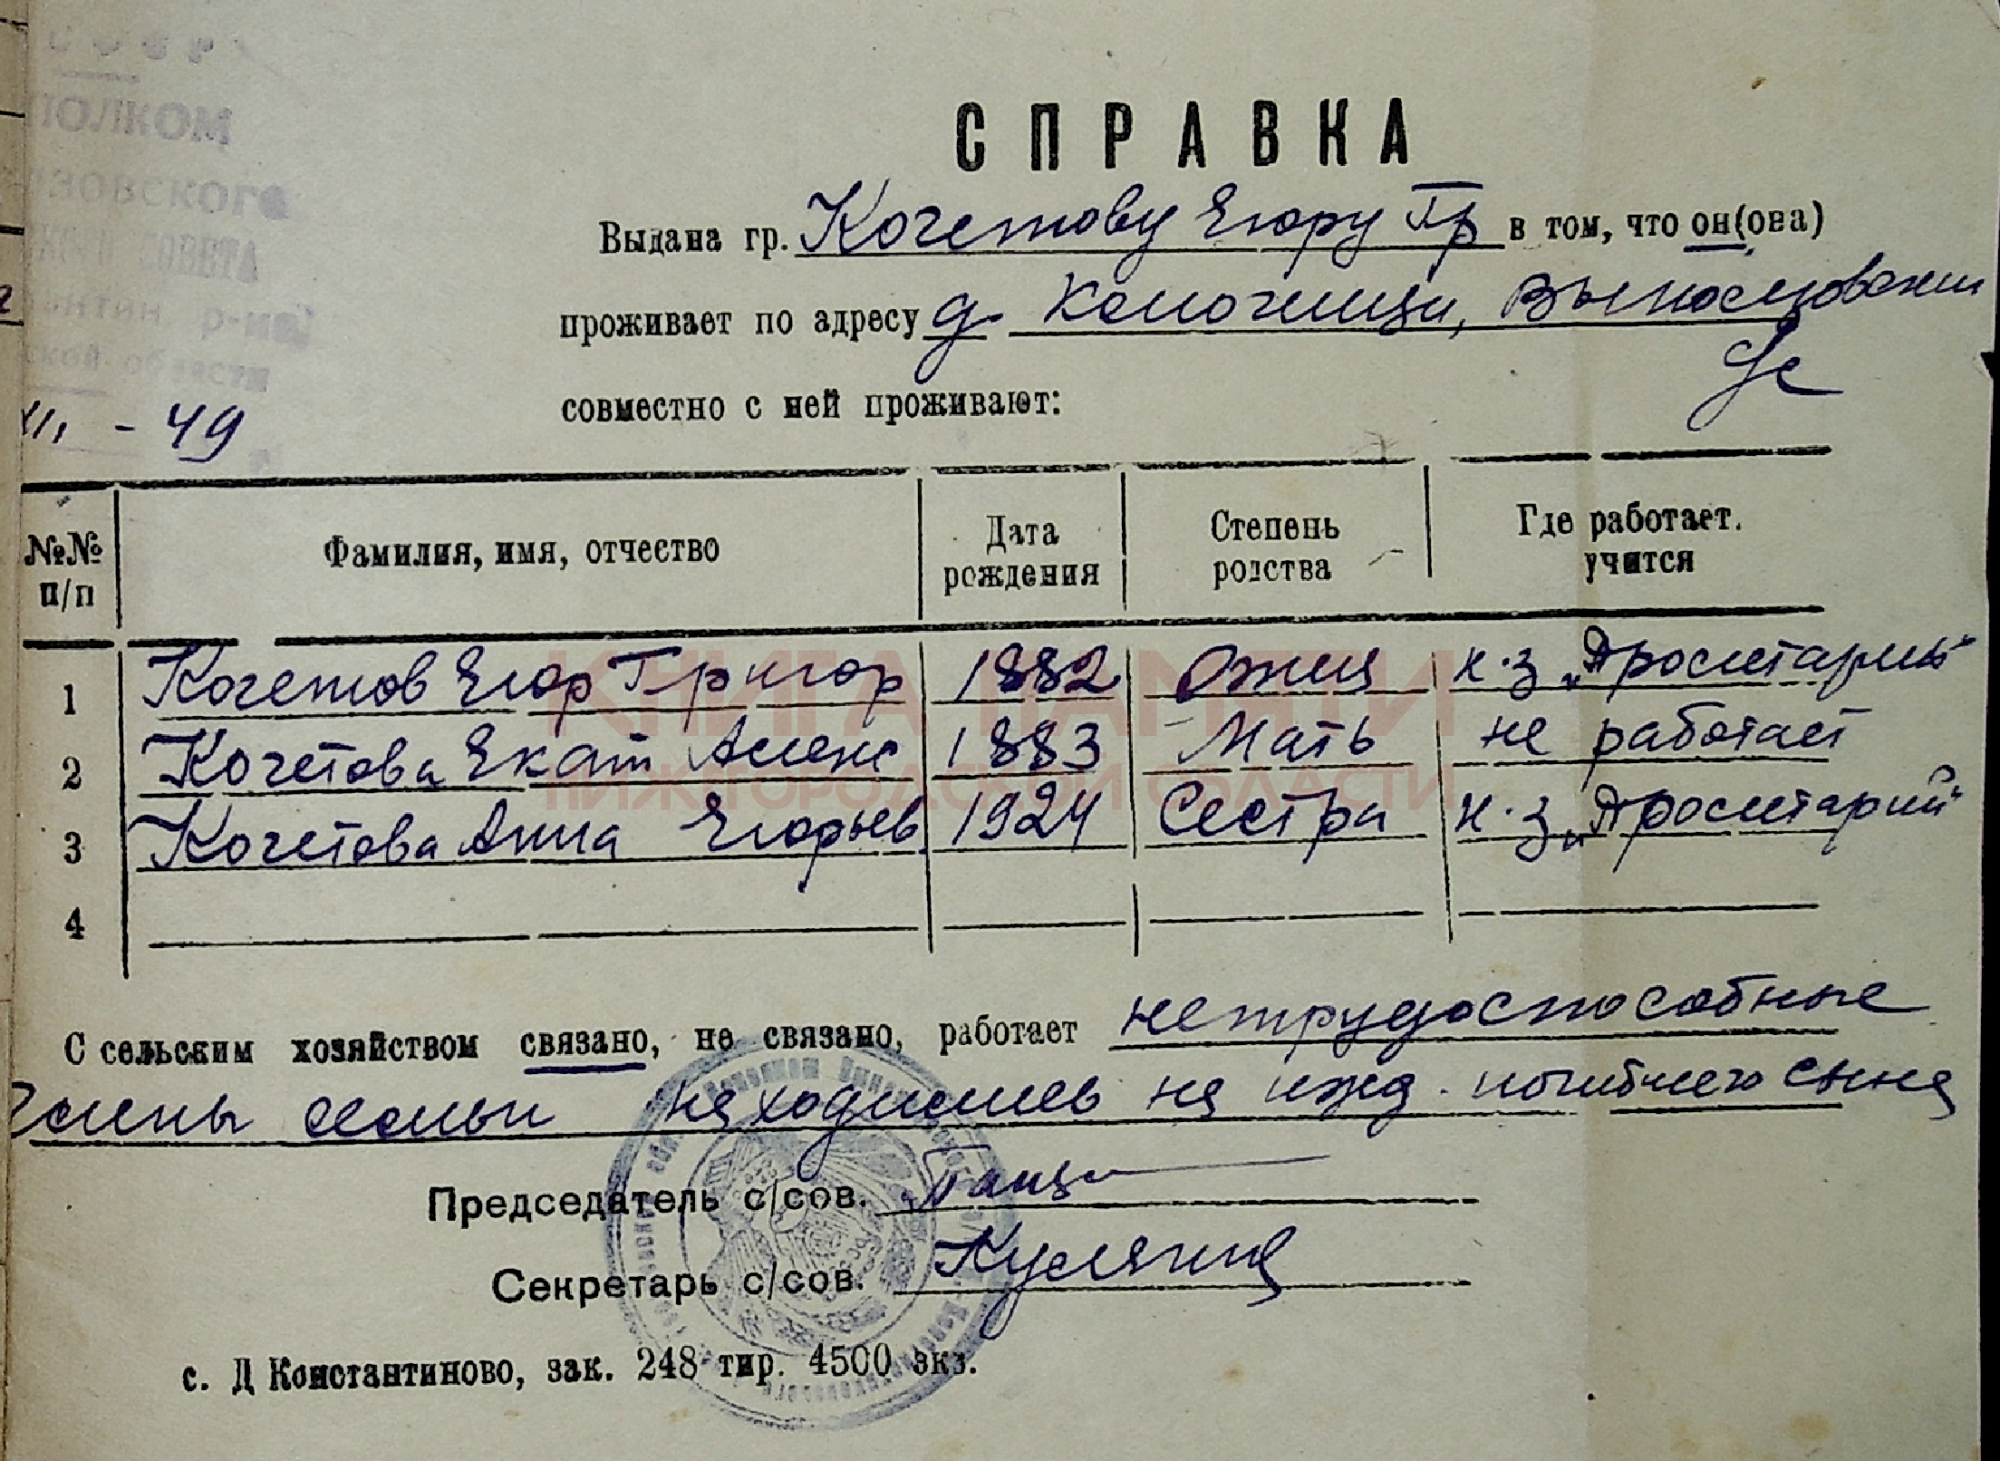 РСФСР
ПОЛКОМ
ИЗОВСКОГО
СОВЕТА
р-на
ской области
XII - 49
СПРАВКА
Выдана гр. Кочетову Егору Гр в том, что он(она)
проживает по адресу д.
с/с
совместно с ней проживают:
№№ п/п Фамилия, имя, отчество Дата рождения Степень родства Где работает. учится
1 Кочетов Егор Григор 1882 Отец к-з „Пролетарий"
2 Кочетова Екат Алекс 1883 Мать не работает
3 Кочетова Анна Егорьев 1924 Сестра к-з „Пролетарий"
4
КНИГА ПАМЯТИ
НИЖЕГОРОДСКОЙ ОБЛАСТИ
С сельским хозяйством связано, не связано, работает нетрудоспособные
Члены семьи находились на ижд. погибшего сына
Председатель с/сов.
Секретарь с/сов. Кулягина
с. Д Константиново, зак. 248 тир. 4500 экз.